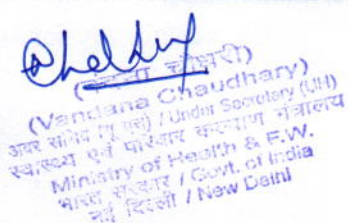 (वन्दना चौधरी)
(Vandana Chaudhary)
अवर सचिव (यू एच) / Under Secretary (UH)
स्वास्थ्य एवं परिवार कल्याण मंत्रालय
Ministry of Health & F.W.
भारत सरकार / Govt. of India
नई दिल्ली / New Delhi